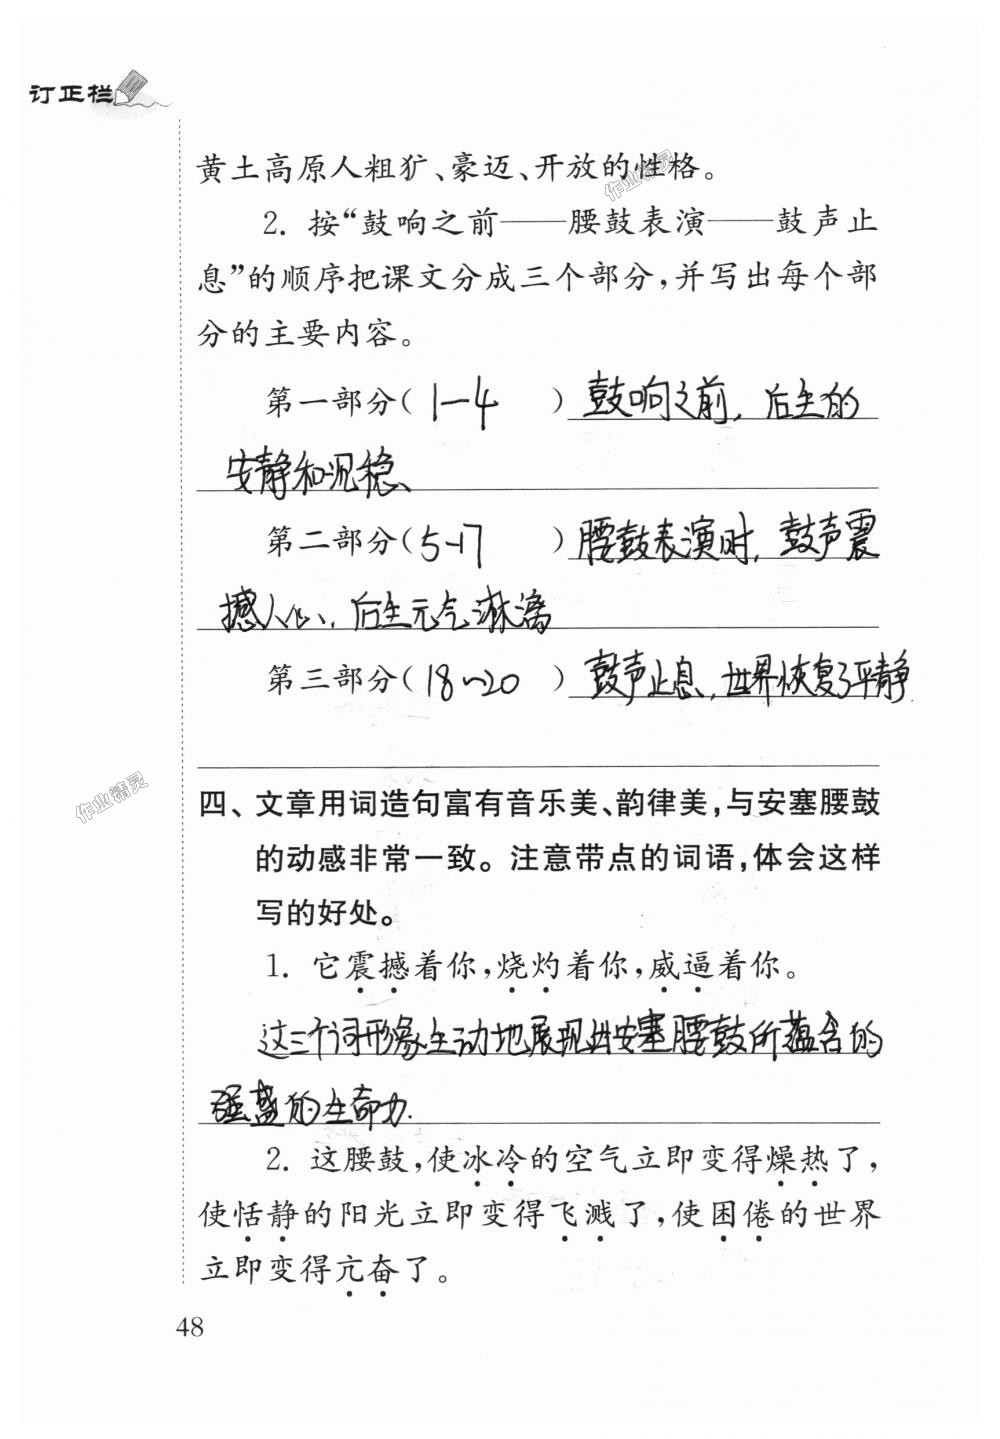 订正栏
黄土高原人粗犷、豪迈、开放的性格。
2. 按“鼓响之前——腰鼓表演——鼓声止
息”的顺序把课文分成三个部分，并写出每个部
分的主要内容。
第一部分（1-4）鼓响之前，后生的
安静和沉稳、
第二部分（5-17）腰鼓表演时，鼓声震
撼人心、后生元气淋漓
第三部分（18~20）鼓声止息，世界恢复了平静
四、文章用词造句富有音乐美、韵律美，与安塞腰鼓
的动感非常一致。注意带点的词语，体会这样
写的好处。
1. 它震撼着你，烧灼着你，威逼着你。
这三个词形象生动地展现出安塞腰鼓所蕴含的
强盛的生命力.
2. 这腰鼓，使冰冷的空气立即变得燥热了，
使恬静的阳光立即变得飞溅了，使困倦的世界
立即变得亢奋了。
48
作业精灵
作业精灵